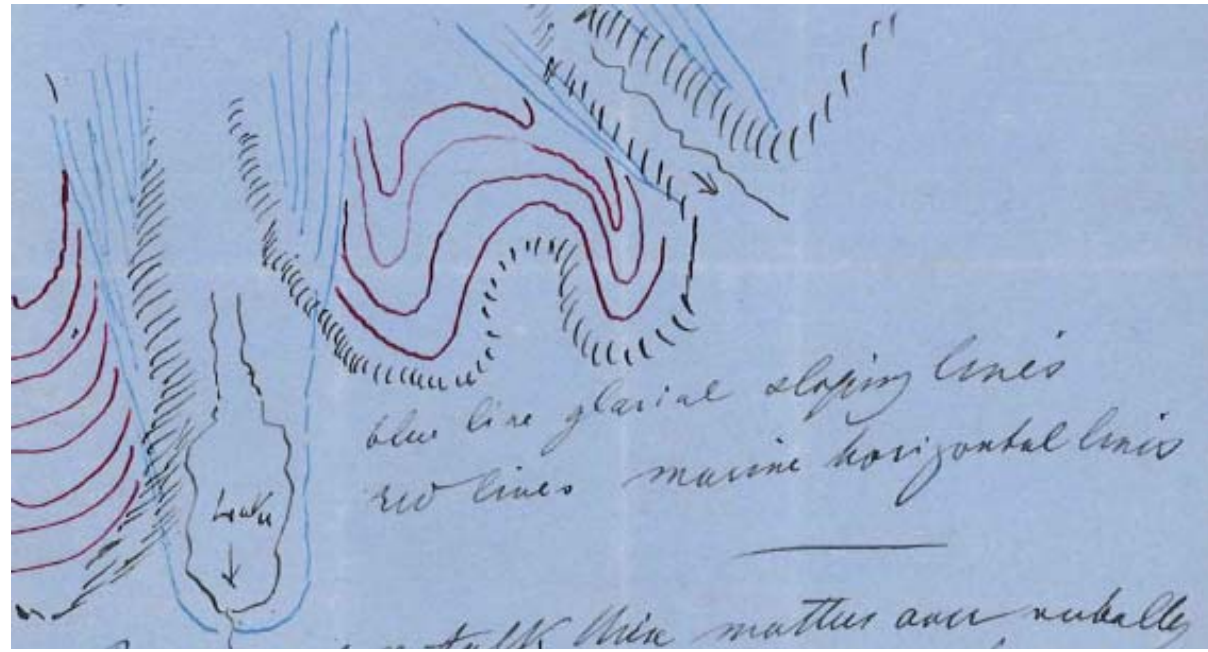 Lake
blue line glacial sloping lines
red lines marine horizontal lines
talk these matters over verbally